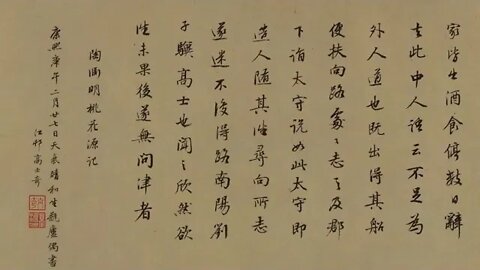 家皆出酒食停數日辭
去此中人語云不足為
外人道也既出得其船
便扶向路處〻志之及郡
下詣太守說如此太守即
遣人隨其往尋向所志
遂迷不復得路南陽劉
子驥高士也聞之欣然欲
往未果後遂無問津者
陶淵明桃花源記
康熙庚午二月廿七日天氣晴和坐瓶廬偶書
江邨高士奇